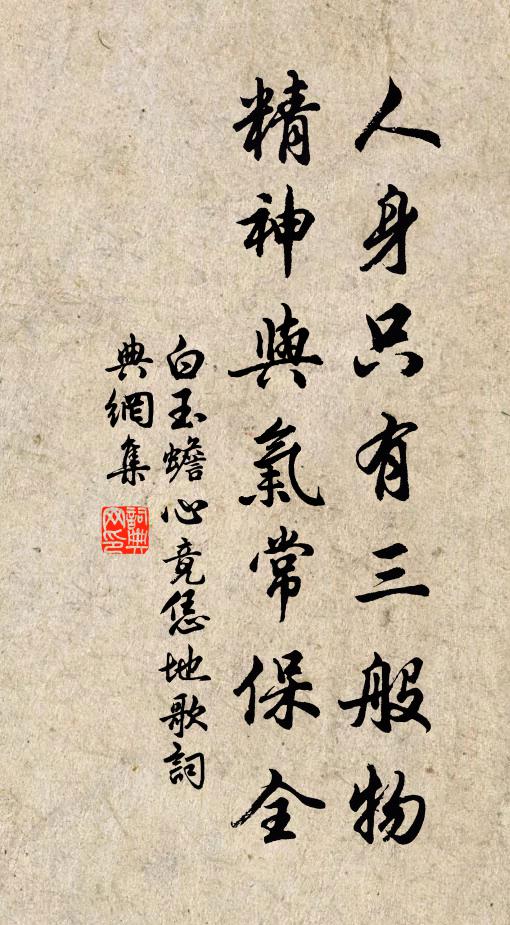 人身只有三般物
精神與氣常保全
白玉蟾必竟恁地歌詞
典網集
詞典
网印